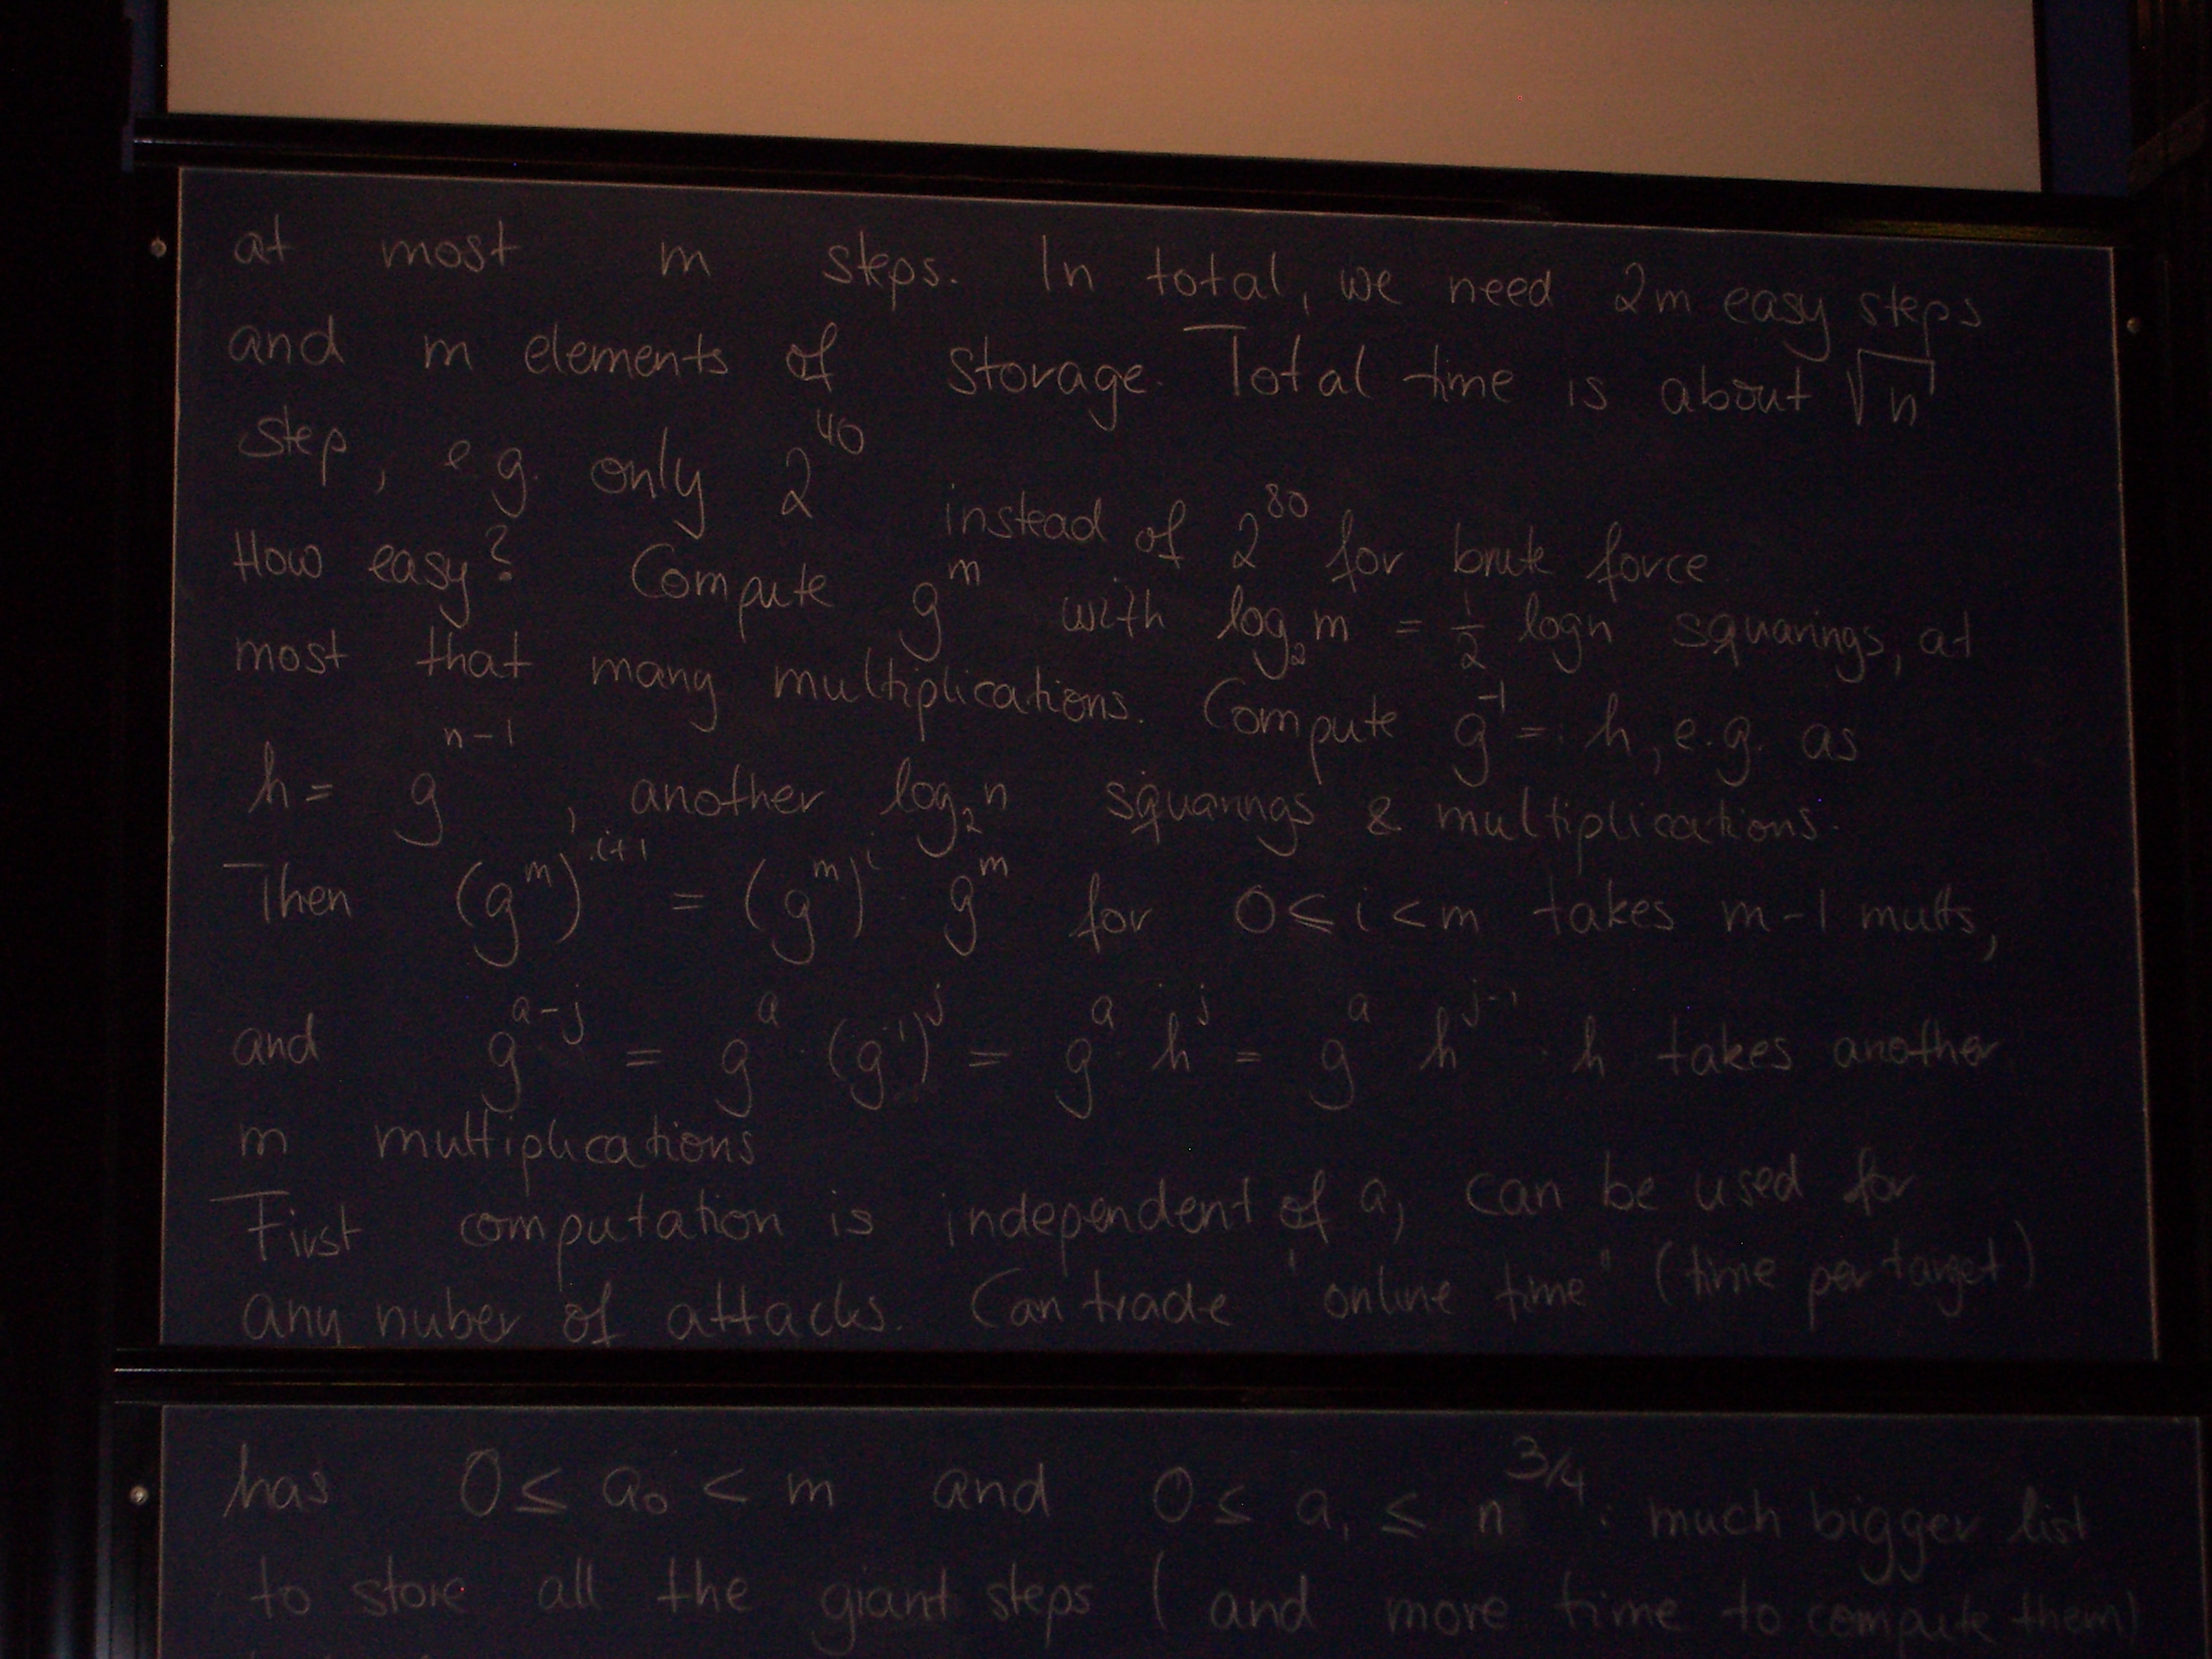 at most m steps. In total, we need 2m easy steps
and m elements of storage. Total time is about √n
step, e.g. only 2^40 instead of 2^80 for brute force
How easy? Compute g^m with log_2 m = 1/2 log n squarings, at
most that many multiplications. Compute g^-1 =: h, e.g. as
h = g^(n-1), another log_2 n squarings & multiplications.
Then (g^m)^(i+1) = (g^m)^i · g^m for 0 ≤ i < m takes m-1 mults,
and g^(a-j) = g^a · (g^-1)^j = g^a · h^j = g^a h^(j-1) · h takes another
m multiplications
First computation is independent of a, can be used for
any nuber of attacks. Can trade "online time" (time per target)
has 0 ≤ a_0 < m and 0 ≤ a_1 ≤ n^(3/4): much bigger list
to store all the giant steps (and more time to compute them)